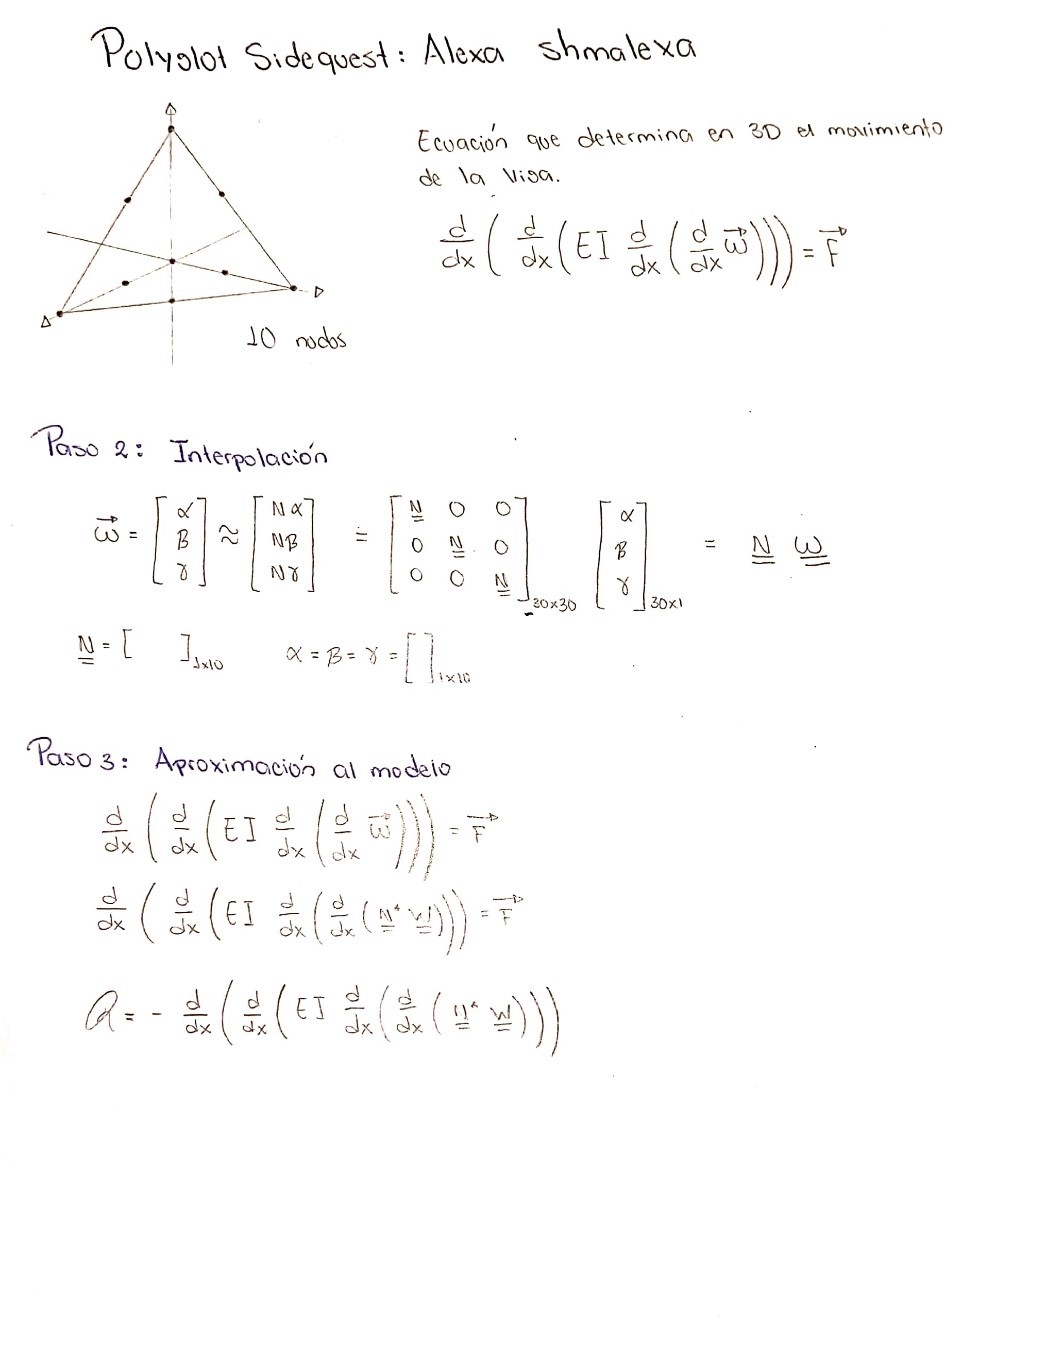 Polyglot Sidequest: Alexa shmalexa
Ecuación que determina en 3D el movimiento
de la viga.
d/dx ( d/dx ( EI d/dx ( d/dx w⃗ ))) = F⃗
10 nodos
Paso 2: Interpolación
w⃗ = [α β γ] ≈ [Nα Nβ Nγ] = [N 0 0 0 N 0 0 0 N]30x30 [α β γ]30x1 = N W
N = [ ]1x10 α = β = γ = [ ]1x10
Paso 3: Aproximación al modelo
d/dx ( d/dx ( EI d/dx ( d/dx w⃗ )))) = F⃗
d/dx ( d/dx ( EI d/dx ( d/dx ( N* W ))) = F⃗
R = - d/dx ( d/dx ( EI d/dx ( d/dx ( N* W ))))